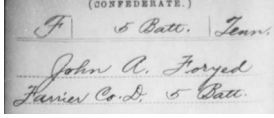 (CONFEDERATE.)
F 5 Batt. Tenn.
John A. Foryed
Farrier Co. D. 5 Batt.